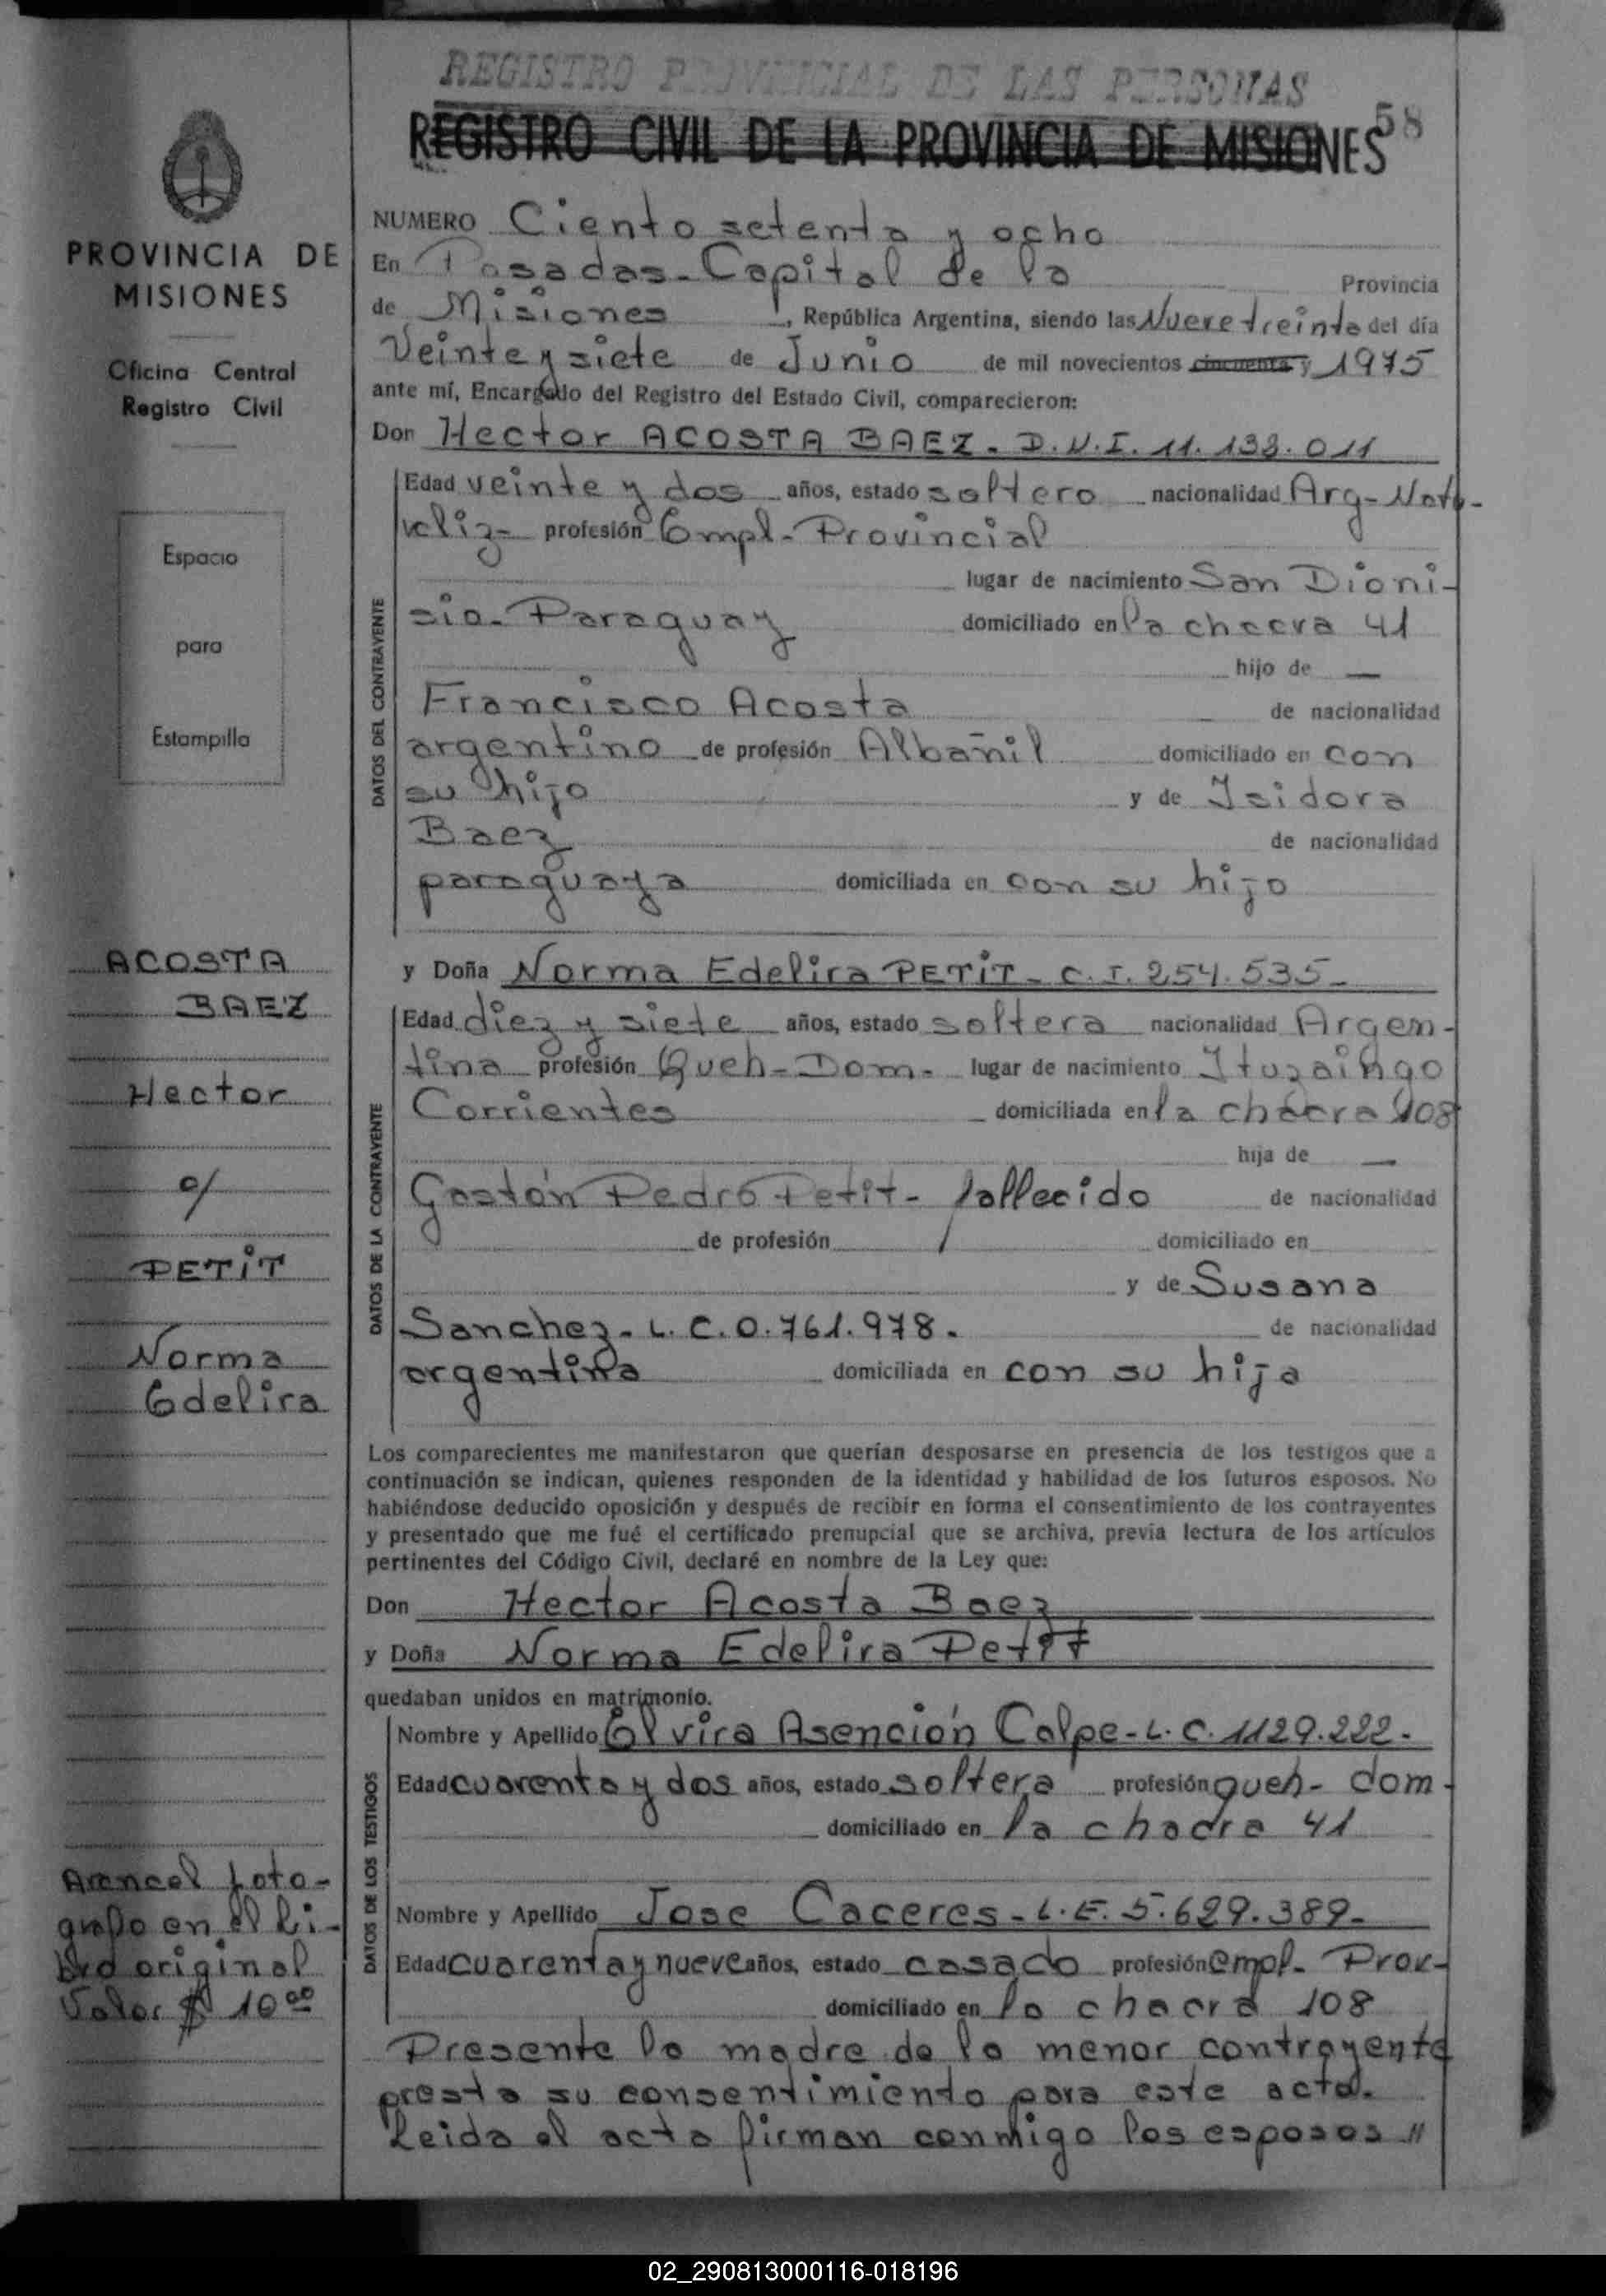 REGISTRO PROVINCIAL DE LAS PERSONAS
REGISTRO CIVIL DE LA PROVINCIA DE MISIONES
58
PROVINCIA DE
MISIONES
Oficina Central
Registro Civil
Espacio
para
Estampilla
ACOSTA
BAEZ
Hector
c/
PETIT
Norma
Edelira
Arancel foto-
grafo en el Li-
bro original
Valor $ 10 00
NUMERO Ciento setenta y ocho
En Posadas - Capital de la Provincia
de Misiones, República Argentina, siendo las Nueve treinta del día
Veinte y siete de Junio de mil novecientos cincuenta y 1975
ante mí, Encargado del Registro del Estado Civil, comparecieron:
Don Hector ACOSTA BAEZ - D.N.I. 11.138.011
DATOS DEL CONTRAYENTE
Edad veinte y dos años, estado soltero nacionalidad Arg- Natu-
raliz- profesión Empl- Provincial
lugar de nacimiento San Dioni-
sio- Paraguay domiciliado en la chacra 41
hijo de —
Francisco Acosta de nacionalidad
argentino de profesión Albañil domiciliado en con
su hijo y de Isidora
Baez de nacionalidad
paraguaya domiciliada en con su hijo
y Doña Norma Edelira PETIT - C.I. 254.535-
DATOS DE LA CONTRAYENTE
Edad diez y siete años, estado soltera nacionalidad Argen-
tina profesión Queh- Dom- lugar de nacimiento Ituzaingo
Corrientes domiciliada en la chacra 108
hija de —
Gastón Pedro Petit- fallecido de nacionalidad
de profesión domiciliado en
y de Susana
Sanchez- L.C. 0.761.978. de nacionalidad
argentina domiciliada en con su hija
Los comparecientes me manifestaron que querían desposarse en presencia de los testigos que a
continuación se indican, quienes responden de la identidad y habilidad de los futuros esposos. No
habiéndose deducido oposición y después de recibir en forma el consentimiento de los contrayentes
y presentado que me fué el certificado prenupcial que se archiva, previa lectura de los artículos
pertinentes del Código Civil, declaré en nombre de la Ley que:
Don Hector Acosta Baez
y Doña Norma Edelira Petit
quedaban unidos en matrimonio.
DATOS DE LOS TESTIGOS
Nombre y Apellido Elvira Asención Colpe- L.C. 1129.222-
Edad cuarenta y dos años, estado soltera profesión queh- dom-
domiciliado en la chacra 41
Nombre y Apellido Jose Caceres- L.E. 5.629.389-
Edad cuarenta y nueve años, estado casado profesión empl- Prov-
domiciliado en la chacra 108
Presente la madre de la menor contrayente
presta su consentimiento para este acto.
Leida el acta firman conmigo los esposos //
02_290813000116-018196